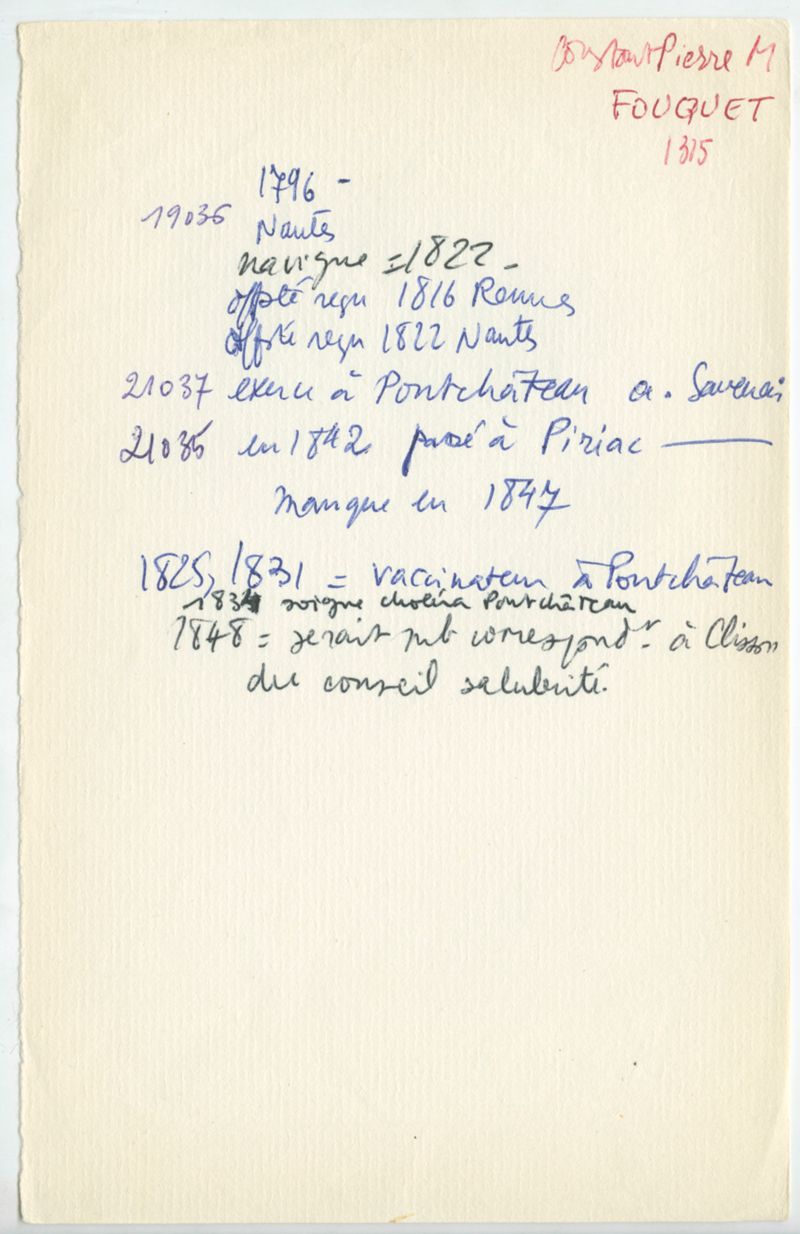 Constant Pierre M
FOUQUET
1315
1796 -
19036
Nantes
navigue = 1822 -
reçu 1816 Rennes
reçu 1822 Nantes
21037 exerce à Pontchâteau a. Savenai
21035 en 1842 passé à Piriac ———
manque en 1847
1825, 1831 = vaccinateur à Pontchâteau
1834 soigne choléra Pontchâteau
1848 = serait correspondt à Clisson
du conseil salubrité.